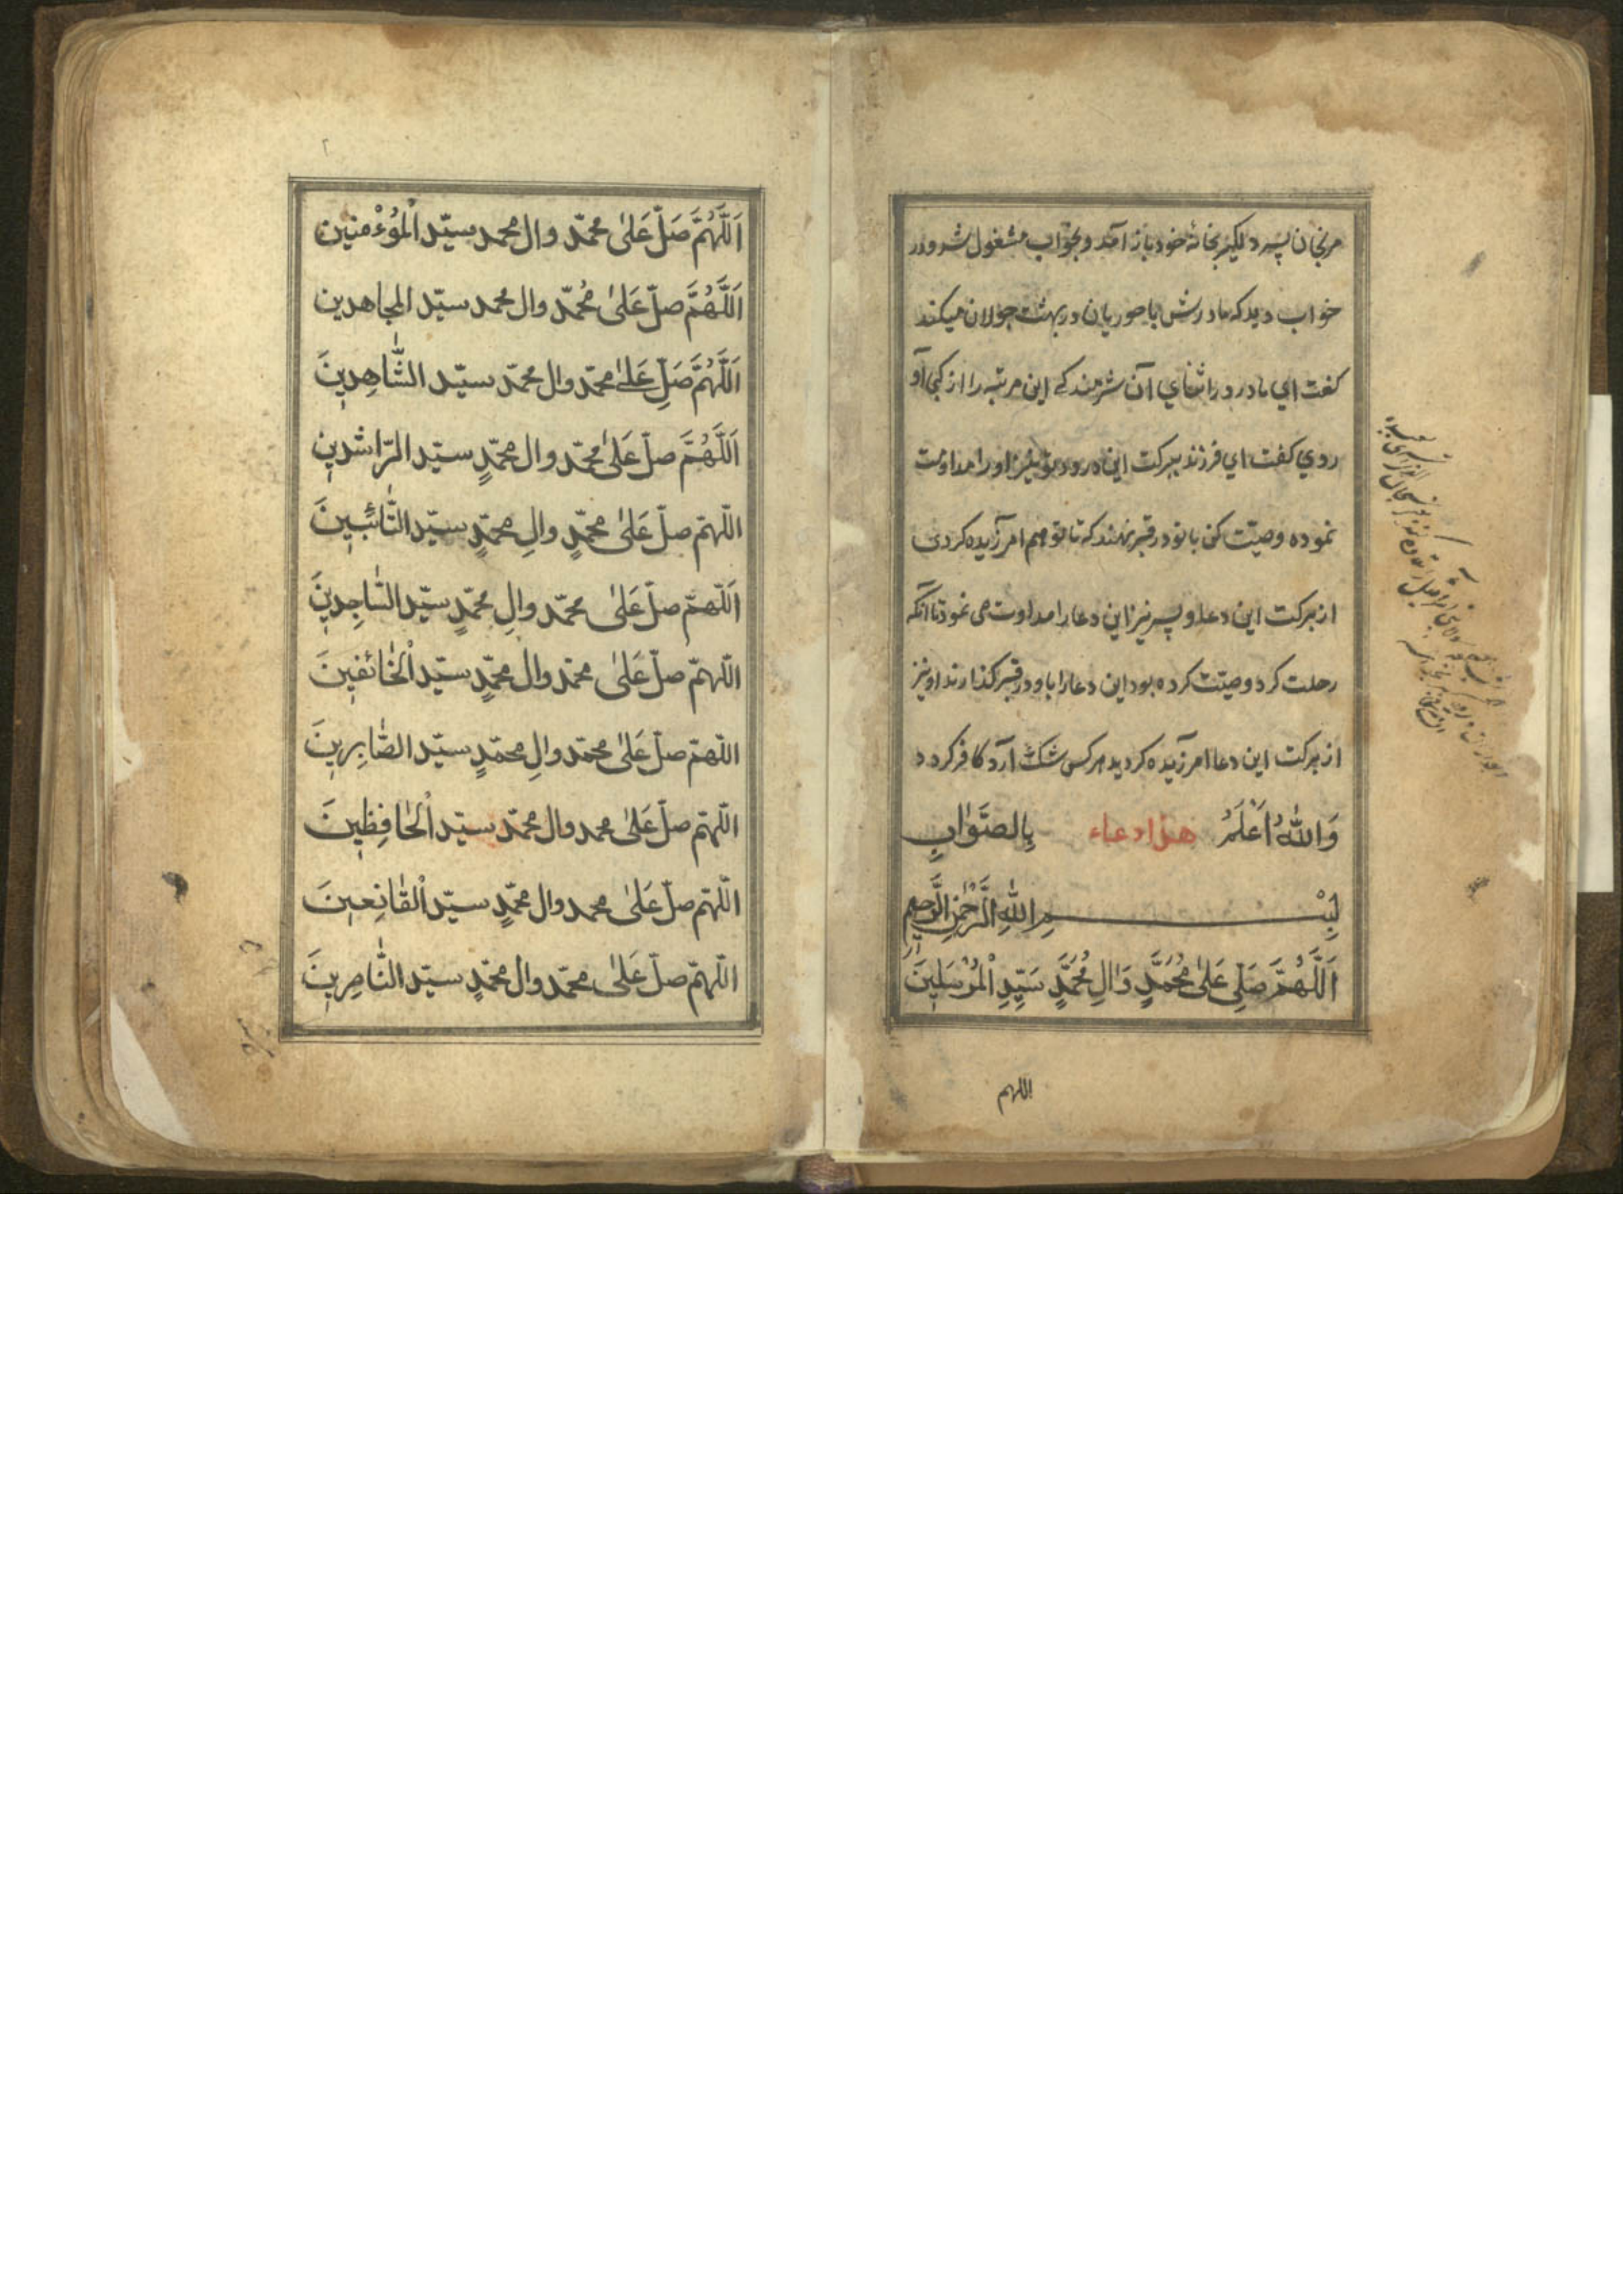 خود باز آمد و بخواب مشغول شد و در
خواب دید که مادرش با حوریان در بهشت جولان میکند
کفت ای مادر در اثنای آن شرمندکی این مرتبه را از کجا آو
روي کفت اي فرزند ببرکت این درود تو نیز او را مداومت
نموده وصیّت کن با تو در قبر نهند که تا تو هم امرزیده کردی
از برکت این دعا و پسر نیز این دعا را مداومت می نمود تا انکه
رحلت کرد وصیّت کرده بود این دعا را با او در قبر کذارند او نیز
از برکت این دعا امرزیده کردید هر کس شک آرد کافر کردد
وَاللهُ اَعْلَمُ هذا دعاء بِالصَّوٰابِ
بِسْمِ اللهِ الرَّحْمٰنِ الرَّحیمِ
اَللَّهُمَّ صَلِّی عَلیٰ مُحَمَّدٍ وَاٰلِ مُحَمَّدٍ سَیِّدِ الْمُرْسَلینَ
اللهم
اَللَّهُمَّ صَلّ عَلیٰ محمّد وال محمد سیّد اْلمُؤْمنین
اَللَّهُمَّ صلّ عَلیٰ مُحمّد وال محمد سیّد المجاهدین
اَللَّهُمَّ صَلِّ عَلےٰ محمّد وال محمّد سیّد الشّٰاهِدینَ
اَللَّهُمَّ صلّ عَلیٰ محمّد وال محمّدٍ سیّد الرّاشدین
اللّهمّ صلّ عَلیٰ محمّدٍ والِ محمّدٍ سیّد التّٰائبینَ
اَللّهمّ صلّ عَلیٰ محمّد والِ محمّدٍ سیّد السّاجِدینَ
اللّهمّ صلّ عَلیٰ محمّد وال محمّدٍ سیّد اْلخٰائفینَ
اللّهمّ صلّ عَلیٰ محمّد والِ محمّدٍ سیّد الصّٰابِرینَ
اللّهمّ صلّ عَلیٰ محمد وال محمّد سیّد اْلحٰافِظینَ
اللّهمّ صلّ عَلیٰ محمد وال محمّدٍ سیّد اْلقٰانِعینَ
اللّهمّ صلّ عَلیٰ محمّد وال محمّدٍ سیّد النّٰاصِرینَ